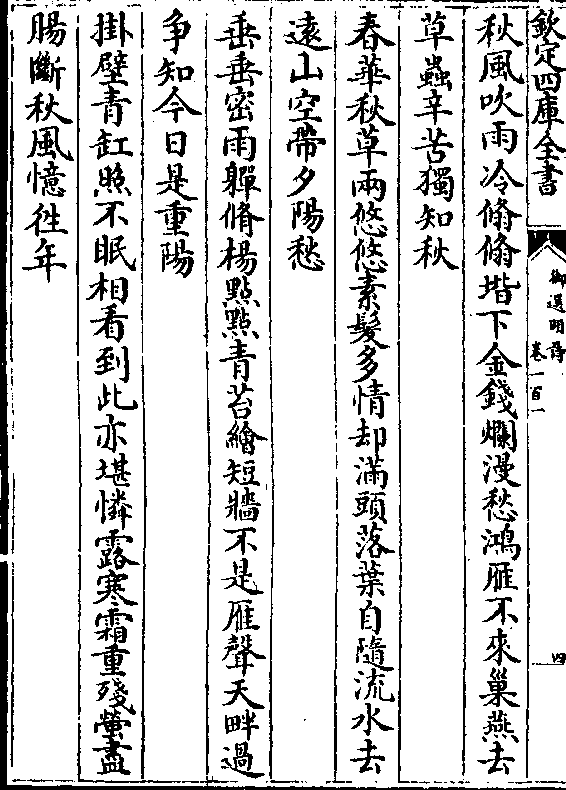 欽定四庫全書
御選明詩
卷一百一
四
秋風吹雨冷翛翛堦下金錢爛漫愁鴻雁不來巢燕去
草蟲辛苦獨知秋
春華秋草兩悠悠素髮多情却滿頭落葉自隨流水去
遠山空帶夕陽愁
垂垂密雨軃脩楊點點青苔繪短牆不是雁聲天畔過
争知今日是重陽
掛壁青缸照不眠相看到此亦堪憐露寒霜重殘螢盡
腸斷秋風憶往年